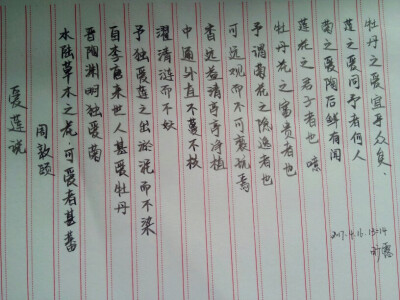 爱莲说
周敦颐
水陆草木之花,可爱者甚蕃
晋陶渊明独爱菊
自李唐来世人甚爱牡丹
予独爱莲之出淤泥而不染
濯清涟而不妖
中通外直不蔓不枝
香远益清亭亭净植
可远观而不可亵玩焉
予谓菊花之隐逸者也
牡丹花之富贵者也
莲花之君子者也 噫
菊之爱陶后鲜有闻
莲之爱同予者何人
牡丹之爱宜乎众矣.
2017.4.16. 13:14